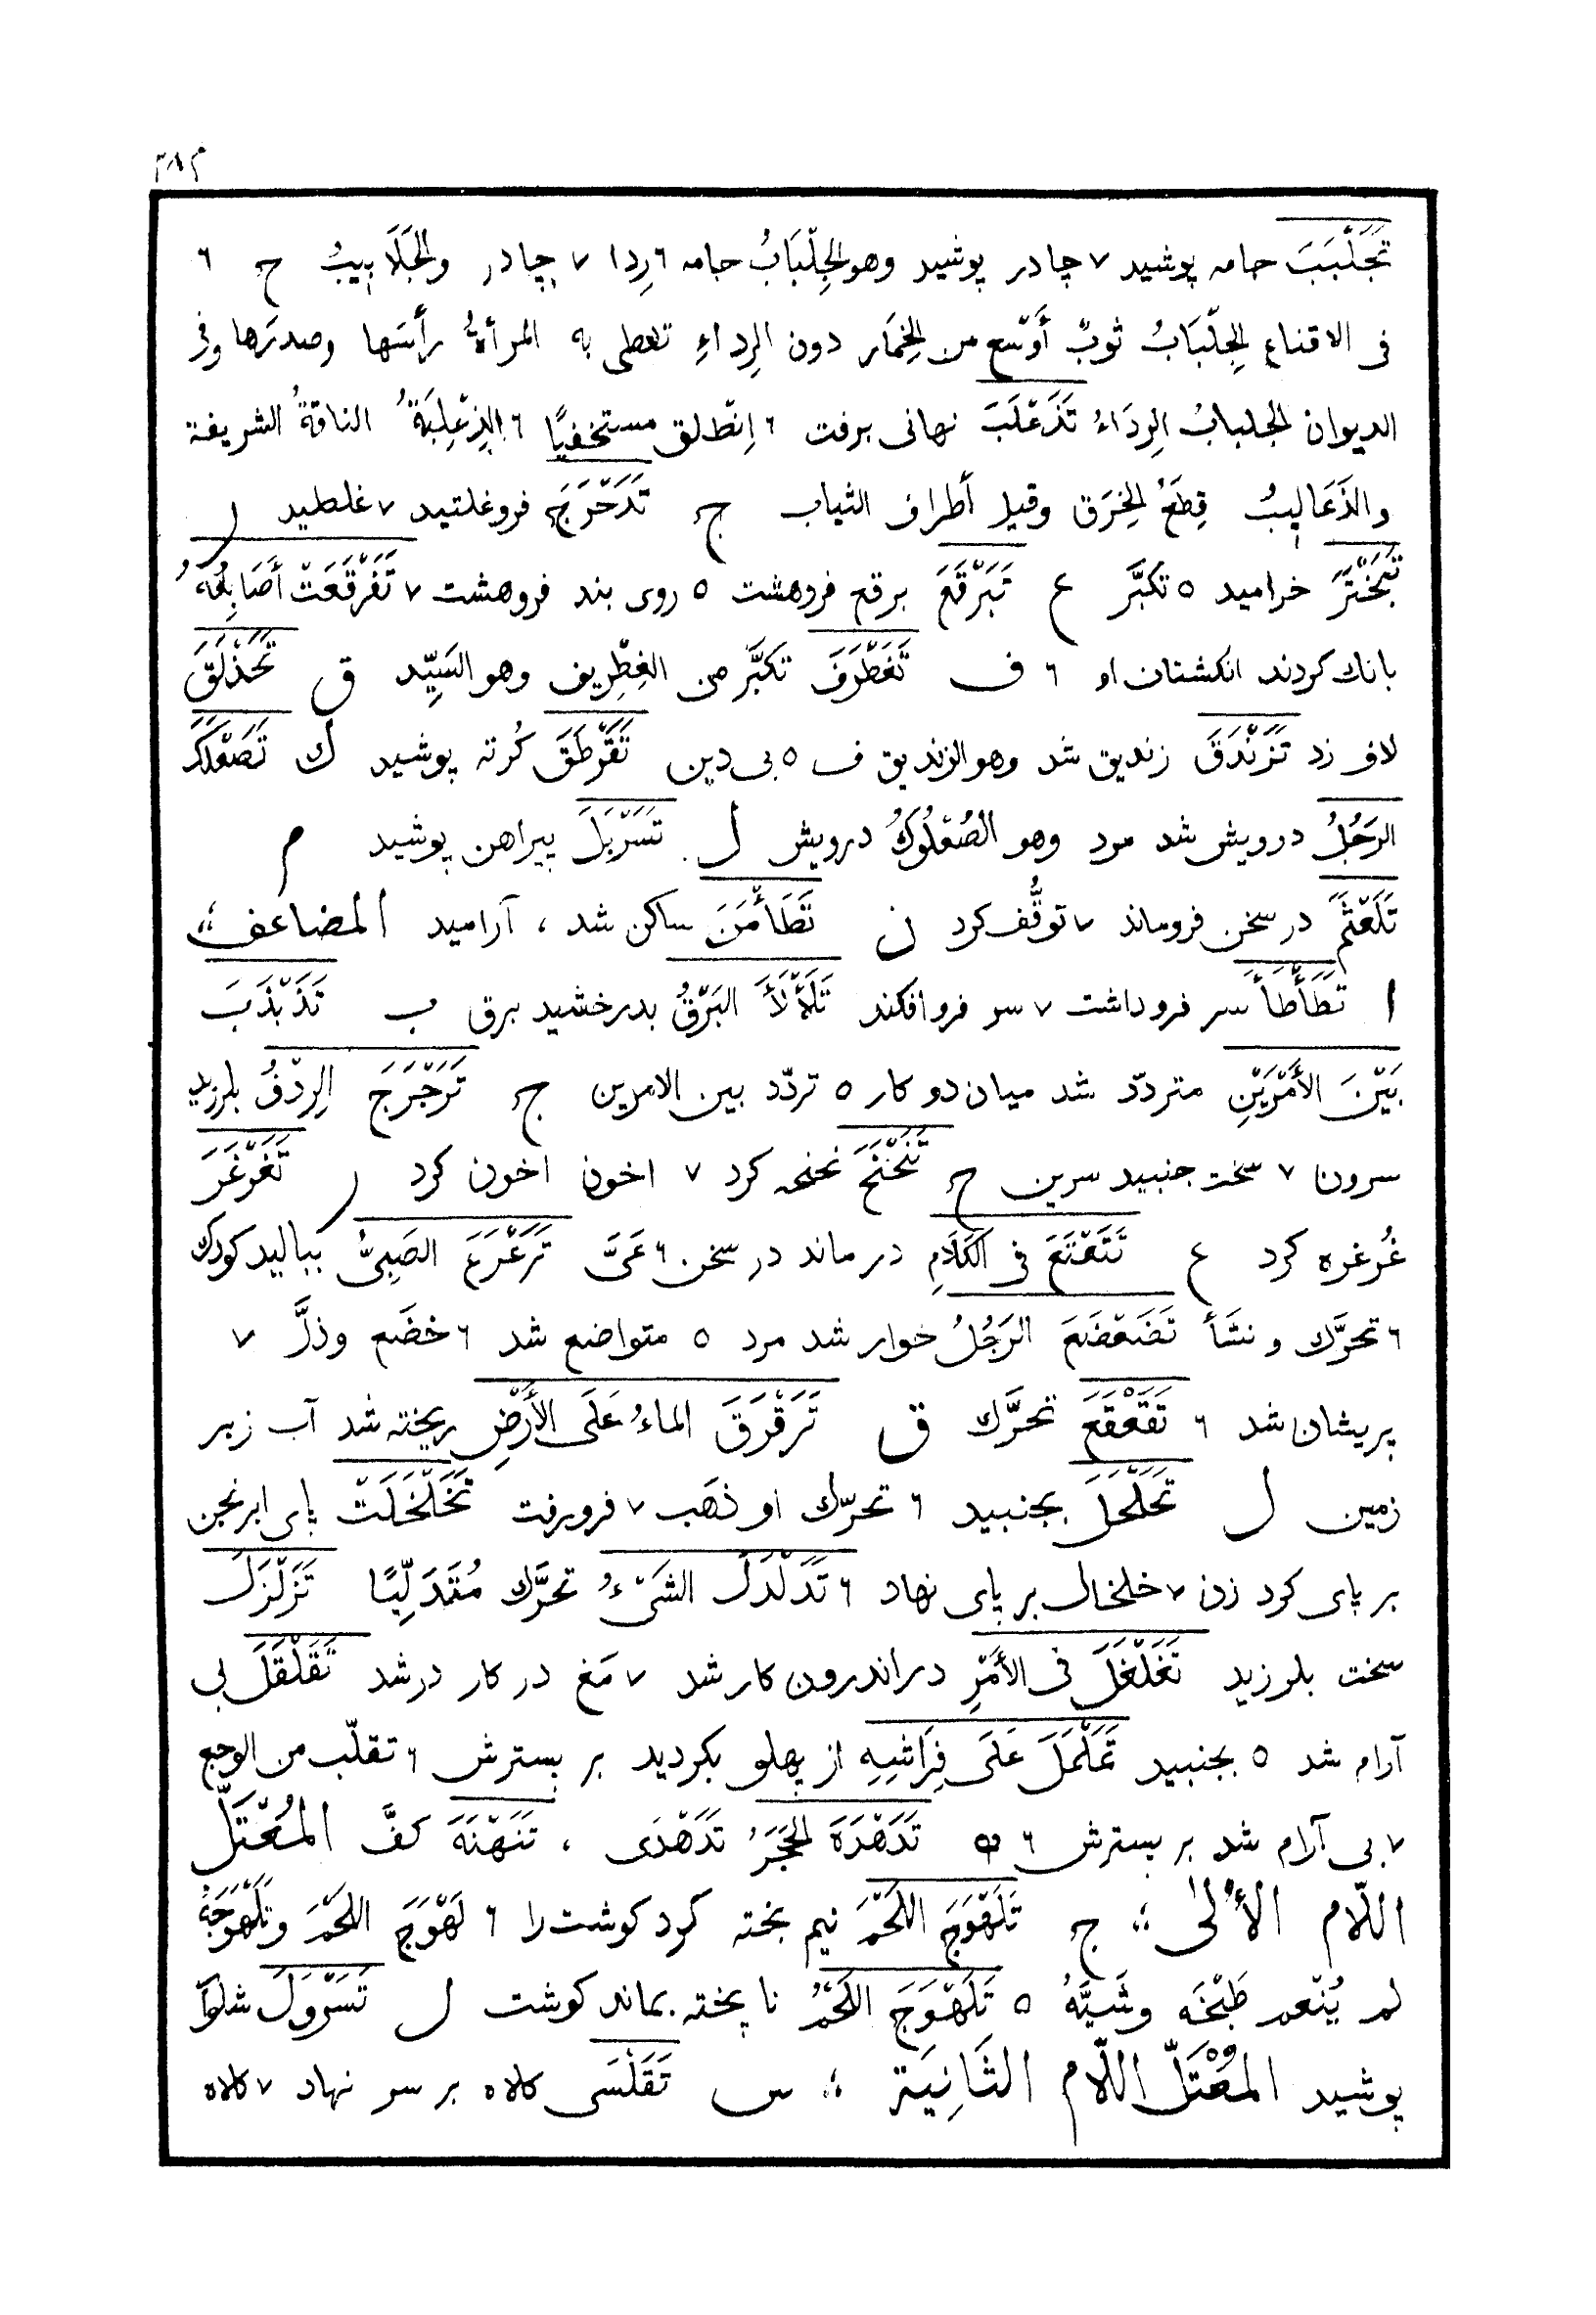 ٣٨٣
تَجَلْبَبَ جامه پوشید ٧ چادر پوشید وهو الجِلْبَابُ جامه ٦ رِدا ٧ چادر والجَلَابِيبُ ح ٦
فی الاقناع الجِلْبَابُ ثوبٌ أَوْسَع من الخِمَار دون الرِداءِ تغطی به المرأةُ رأسَها وصدرَها وفی
الديوان الجلبابُ الرِدَاءُ تَذَعْلَبَ نهانی برفت ٦ اِنْطلق مستخفيًا ٦ الذِعْلِبَةُ الناقةُ الشريفة
والذَعَالِيبُ قِطَعُ الخِرَق وقيل أطراف الثياب ج تَدَحْرَجَ فروغلتید ٧ غلطید ر
تَبَخْتَرَ خرامید ٥ تکبَّر ع تَبَرْقَعَ برقع فروهشت ٥ روی بند فروهشت ٧ تَفَرْقَعَتْ أَصَابِعُهُ
بانك کردند انکشتان او ٦ ف تَغَطْرَفَ تکبَّر من الغِطْرِيف وهو السَيِّد ق تَحَذْلَقَ
لاف زد تَزَنْدَقَ زندیق شد وهو الزنديق ف ٥ بی دین تَقَرْطَقَ کُرته پوشید ك تَصَعْلَكَ
الرَجُلُ درویش شد مرد وهو الصُعْلُوكُ درویش ل تَسَرْبَلَ پیراهن پوشید م
تَلَعْثَمَ در سخن فروماند ٧ توقُّف کرد ن تَطَأْمَنَ ساکن شد ، آرامید المضاعف ؛
ا تَطَأْطَأَ سر فروداشت ٧ سر فروافکند تَلَأْلَأَ البَرْقُ بدرخشید برق ب تَذَبْذَبَ
بَيْنَ الأَمْرَيْنِ متردّد شد میان دو کار ٥ تردّد بين الامرين ج تَرَجْرَجَ الرِدْفُ بلرزید
سرون ٧ سخت جنبید سرین ح تَنَحْنَحَ نحنحه کرد ٧ اخون اخون کرد ر تَغَرْغَرَ
غُرغره کرد ع تَتَعْتَعَ فی الكَلَامِ در ماند در سخن ٦ عَیَّ تَرَعْرَعَ الصَبِیُّ ببالید کودك
٦ تحرَّك و نشَأ تَضَعْضَعَ الرَجُلُ خوار شد مرد ٥ متواضع شد ٦ خضَع وذلَّ ٧
پریشان شد ٦ تَقَعْقَعَ تحرَّك ق تَرَقْرَقَ الماءُ عَلَى الأَرْضِ ریخته شد آب زبر
زمین ل تَحَلْحَلَ بجنبید ٦ تحرّك او ذهَب ٧ فرورفت تَخَلْخَلَتْ پای ابرنجن
بر پای کرد زن ٧ خلخال بر پای نهاد ٦ تَدَلْدَلَ الشَیْءُ تحرَّك مُتَدَلِّيًا تَزَلْزَلَ
سخت بلرزید تَغَلْغَلَ فی الأَمْرِ در اندرون کار شد ٧ مَغ در کار درشد تَقَلْقَلَ بی
آرام شد ٥ بجنبید تَمَلْمَلَ عَلَى فِرَاشِهِ از پهلو بکردید بر بسترش ٦ تقلّب من الوجع
٧ بی آرام شد بر بسترش ٦ ه تَدَهْدَهَ الحَجَرُ تَدَهْدَى ، تَنَهْنَهَ كفَّ المُعْتَلّ
اللّام الأُولىٰ ؛ ج تَلَهْوَجَ اللَحْمَ نیم پخته کرد کوشت را ٦ لَهْوَجَ اللحْمَ وتَلَهْوَجَهُ
لم يُنْعم طَبْخَه وشَيَّهُ ٥ تَلَهْوَجَ اللَحْمُ نا پخته بماند کوشت ل تَسَرْوَلَ شلوار
پوشید المُعْتَلّ اللّام الثَانِيَة ؛ س تَقَلْسَى کلاه بر سر نهاد ٧ کلاه